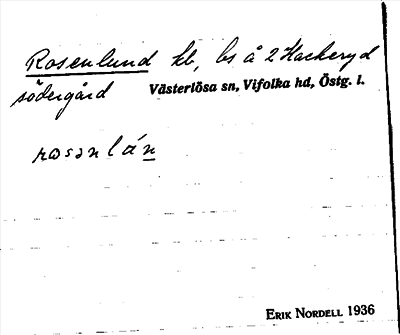 Rosenlund kb, bs å 2 Hackeryd
södergård Västerlösa sn, Vifolka hd, Östg. l.
rosənlán
ERIK NORDELL 1936